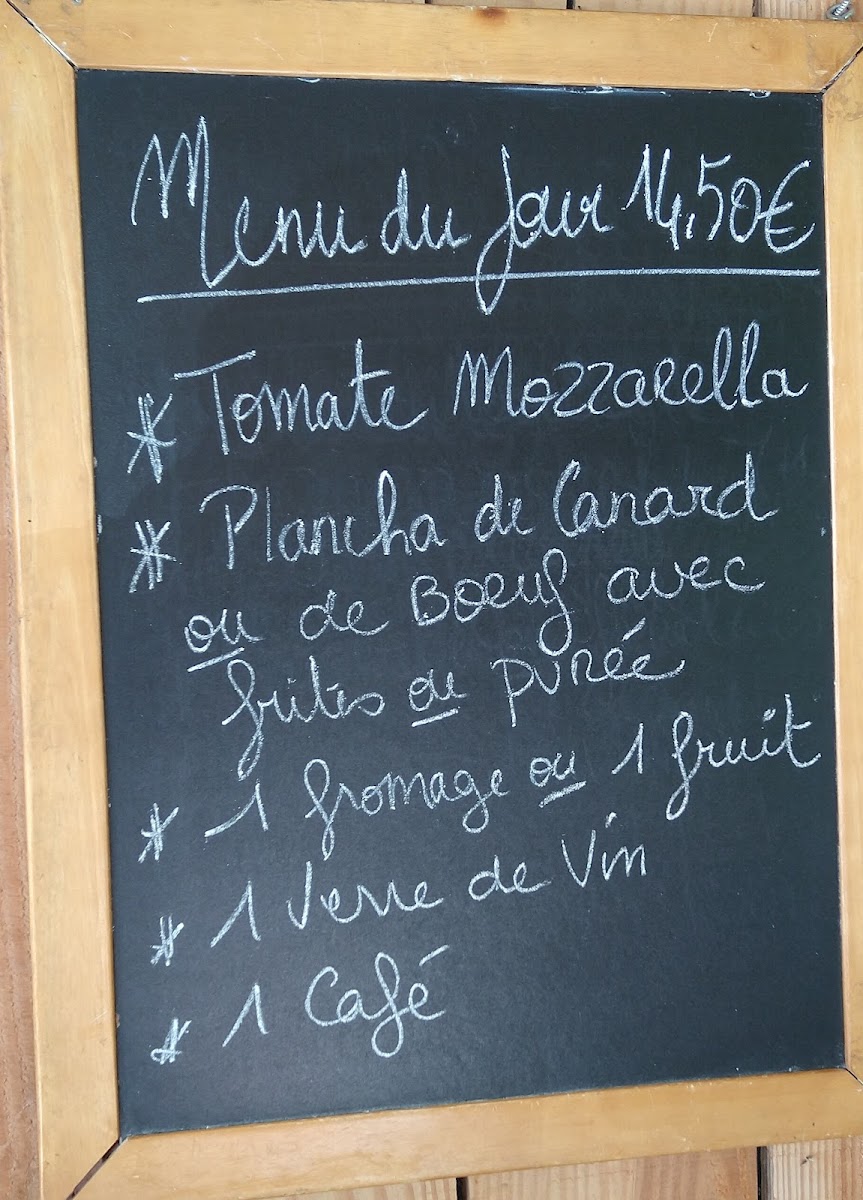 Menu du jour 14,50€
* Tomate Mozzarella
* Plancha de Canard
ou de Boeuf avec
frites ou purée
* 1 fromage ou 1 fruit
* 1 Verre de Vin
* 1 Café